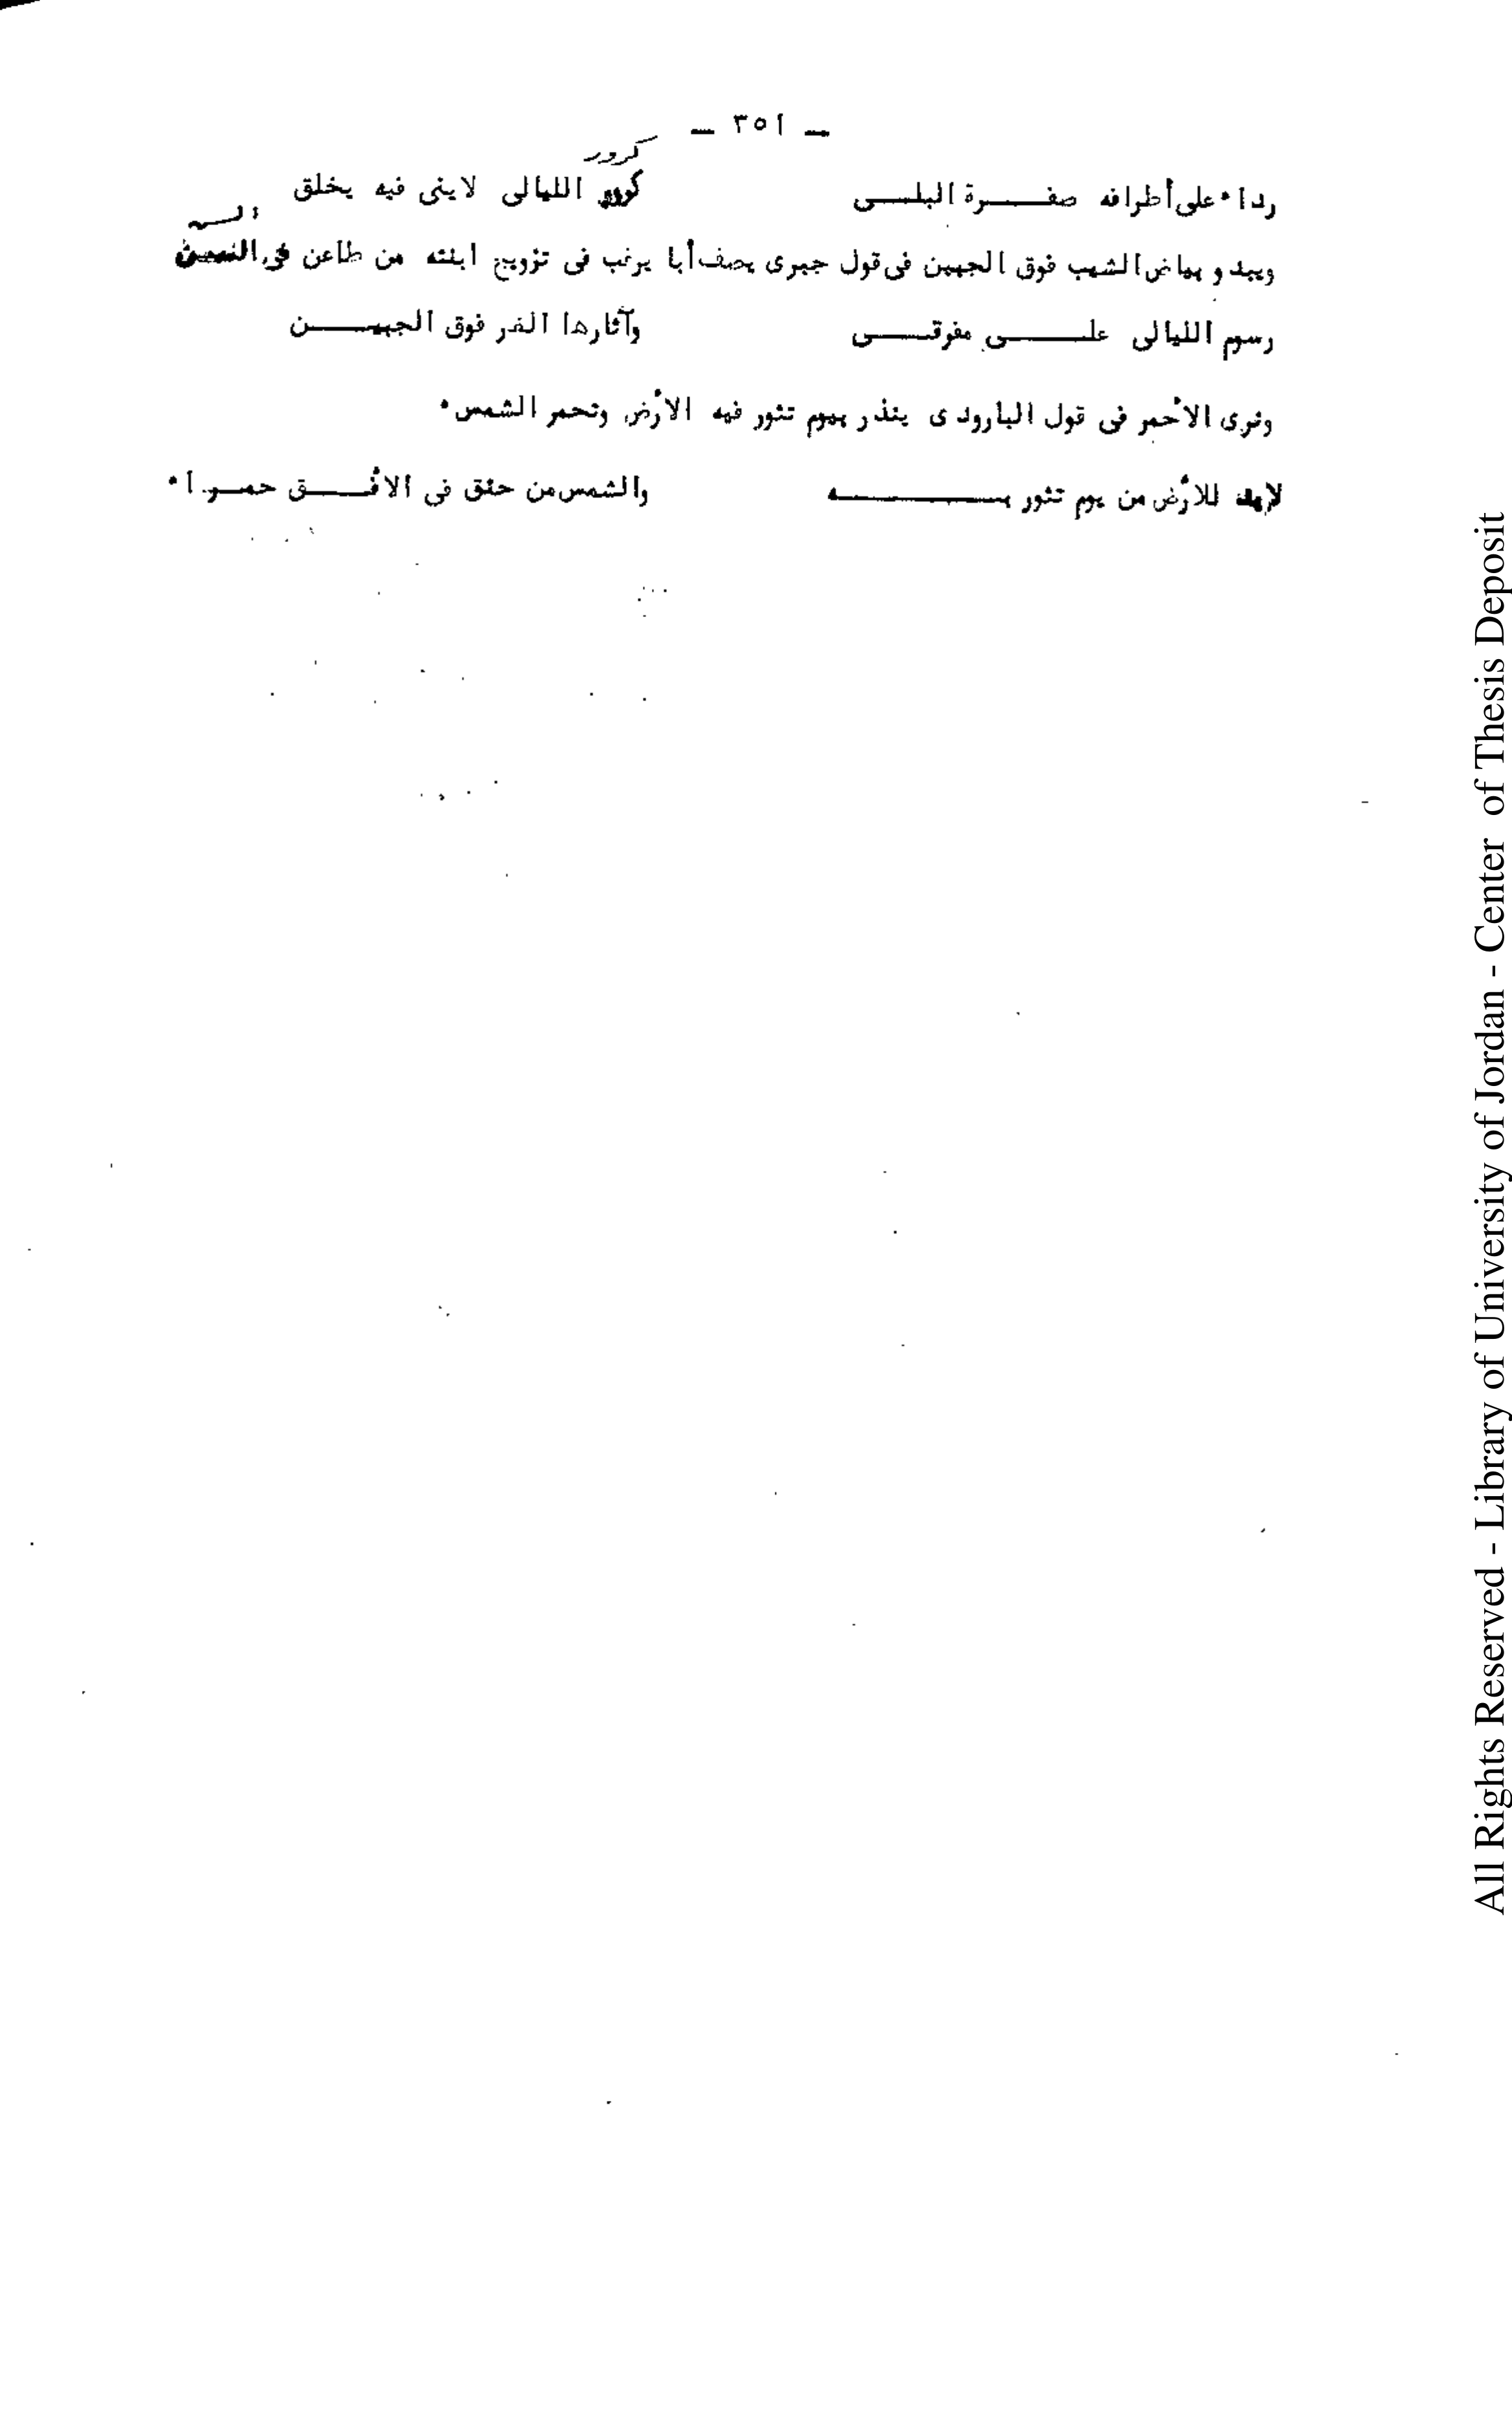 — ٣٥١ —
كرور
رداء على أطرافه صفـــرة البلـــى كرور الليالى لاينى فيه يخلق
السن
ويبدو بياض الشيب فوق الجبين فى قول جبرى يصف أبا يرغب فى تزويج ابنته من طاعن فى
رسوم الليالى علـــــى مفرقـــــى وآثارها الغر فوق الجبيـــــن
ونرى الأحمر فى قول البارودى ينذر بيوم تثور فيه الأرض وتحمر الشمس٠
لابد للأرض من يوم تثور بـــــــه والشمس من حنق فى الأفـــــق حمـــراء
All Rights Reserved - Library of University of Jordan - Center of Thesis Deposit